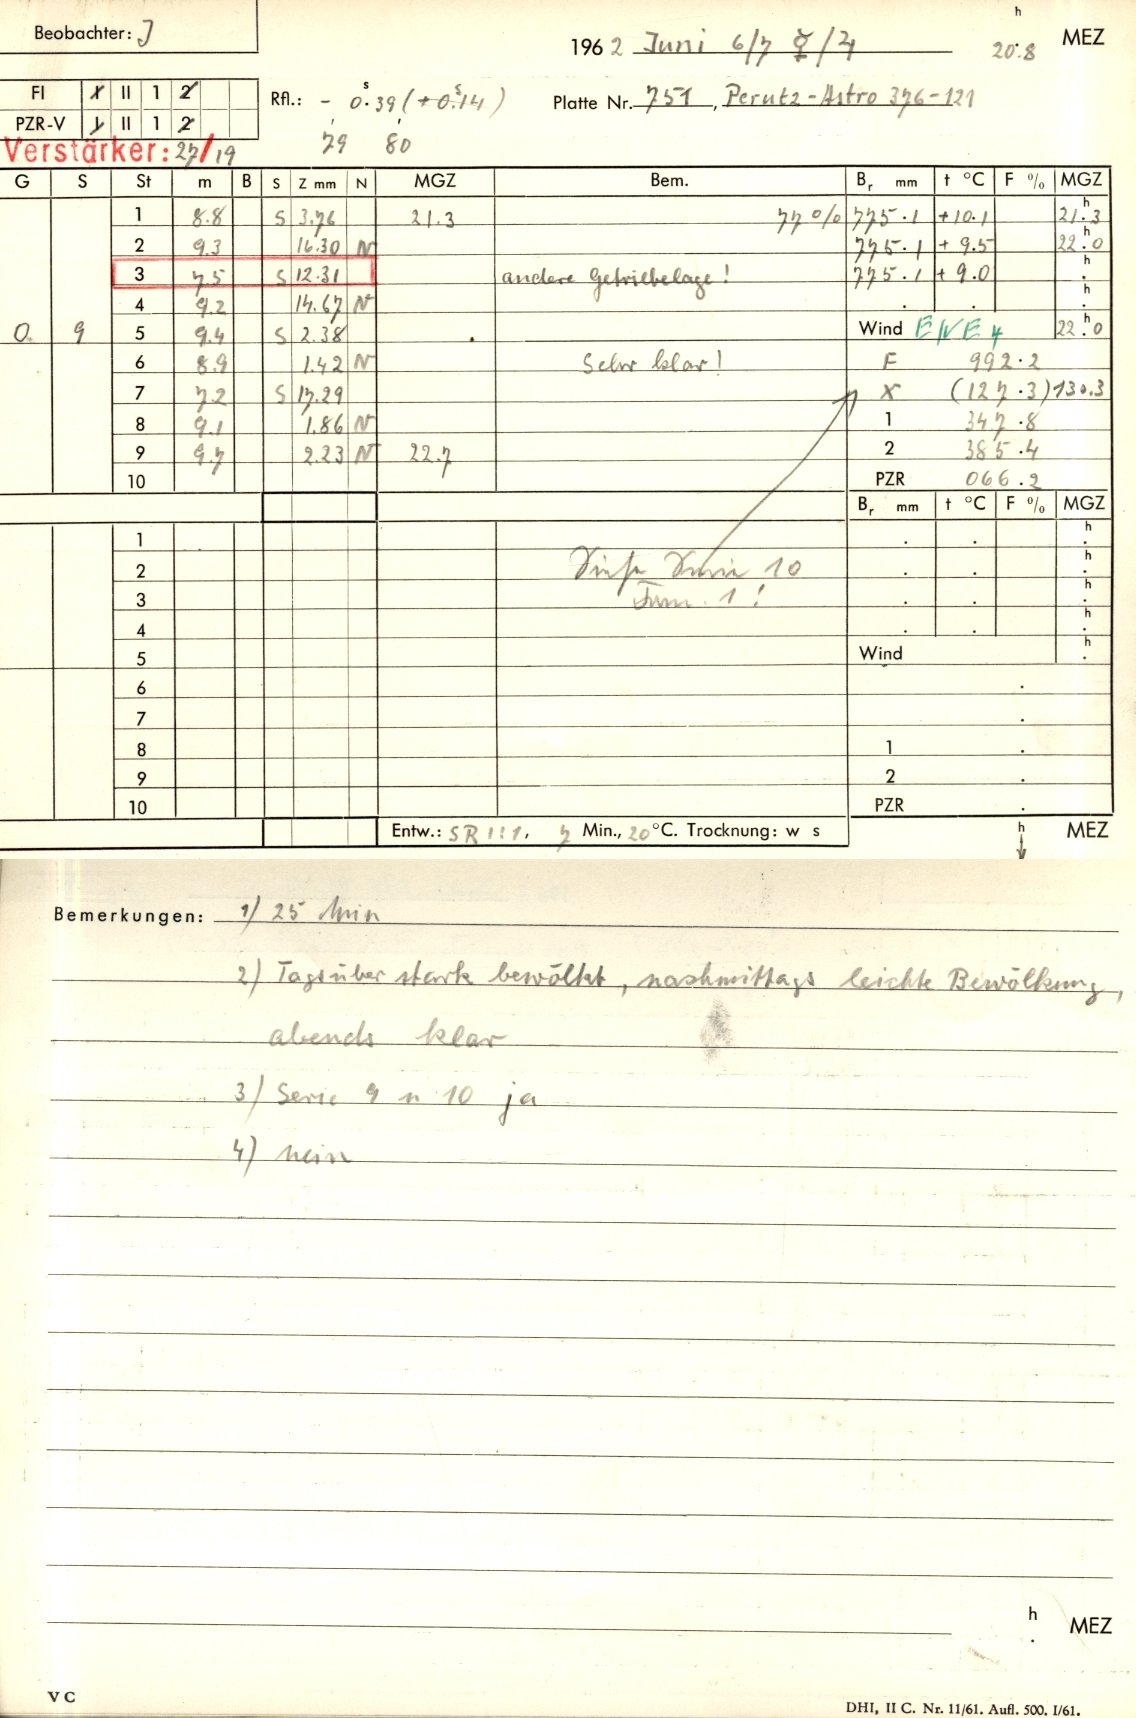 Beobachter: J
h
1962 Juni 6/7 ☿/♃ 20.8 MEZ
FI X II 1 2
PZR-V X II 1 2
Rfl.: - 0.ˢ39 (+0.ˢ14) Platte Nr. 751, Perutz-Astro 376-121
79 80
Verstärker: 27/19
G S St m B S Z mm N MGZ Bem. Bᵣ mm t °C F % MGZ
1 8.8 S 3.76 21.3 77% 775.1 +10.1 21.ʰ3
2 9.3 16.30 N 775.1 +9.5 22.ʰ0
3 7.5 S 12.31 andere Getriebelage! 775.1 +9.0 h .
4 9.2 14.67 N . . h .
0. 9 5 9.4 S 2.38 . Wind ENE 4 22.ʰ0
6 8.9 1.42 N Sehr klar! F 992.2
7 7.2 S 17.29 X (127.3) 130.3
8 9.1 1.86 N 1 347.8
9 9.7 2.23 N 22.7 2 385.4
10 PZR 066.2
Bᵣ mm t °C F % MGZ
1 . . h .
2 Siehe Serie 10 . . h .
3 1! . . h .
4 . . h .
5 Wind h .
6 .
7 .
8 1 .
9 2 .
10 PZR .
Entw.: SR 1:1, 7 Min., 20°C. Trocknung: w s h MEZ
Bemerkungen: 1) 25 Min
2) Tagsüber stark bewölkt, nachmittags leichte Bewölkung,
abends klar
3) Serie 9 u 10 ja
4) nein
h . MEZ
V C
DHI, II C. Nr. 11/61. Aufl. 500. I/61.